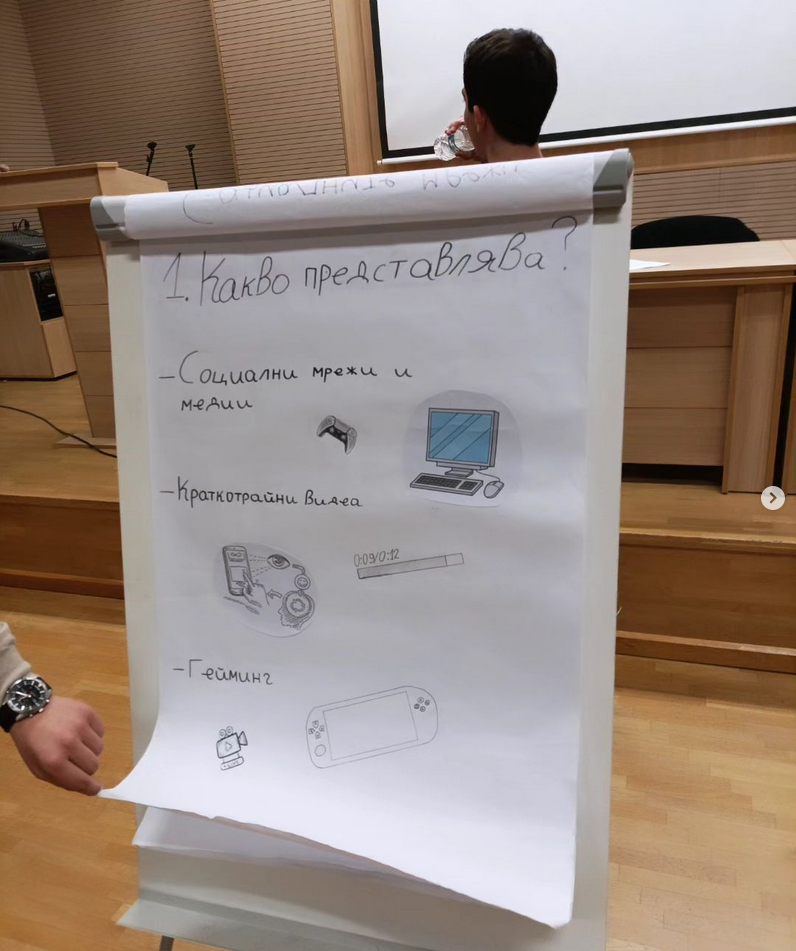 1. Какво представлява?
– Социални мрежи и
медии
– Краткотрайни видеа
0:09/0:12
– Гейминг